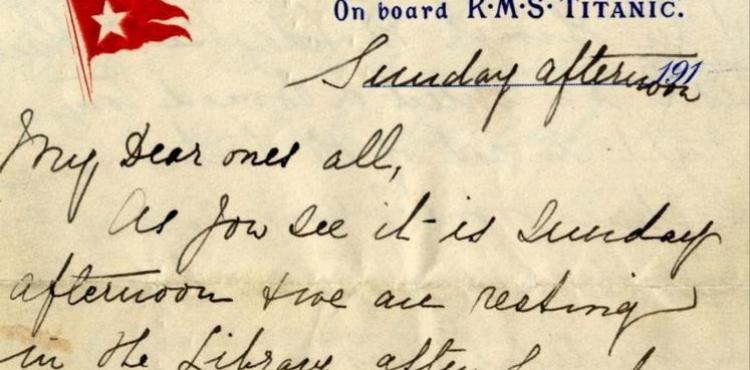 On board R·M·S· TITANIC.
Sunday afternoon 191
My Dear ones all,
As you see it is Sunday
afternoon & we are resting
in the Library after